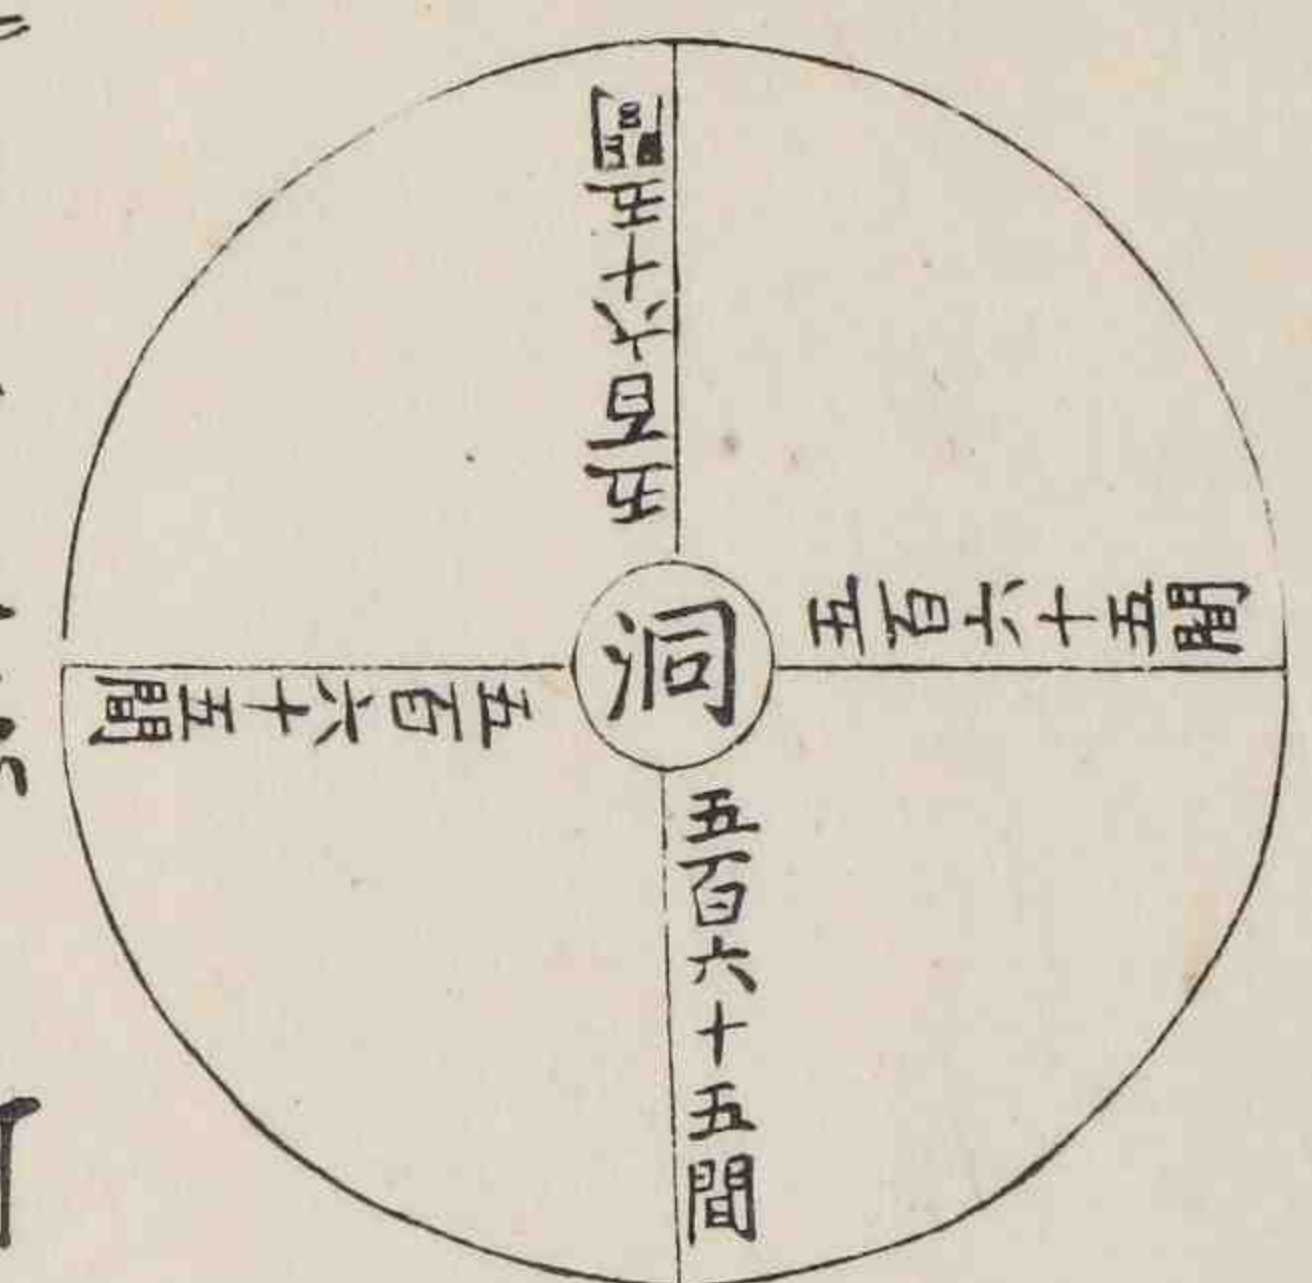 五百六十五間
五百六十五間
洞
五百六十五間
五百六十五間